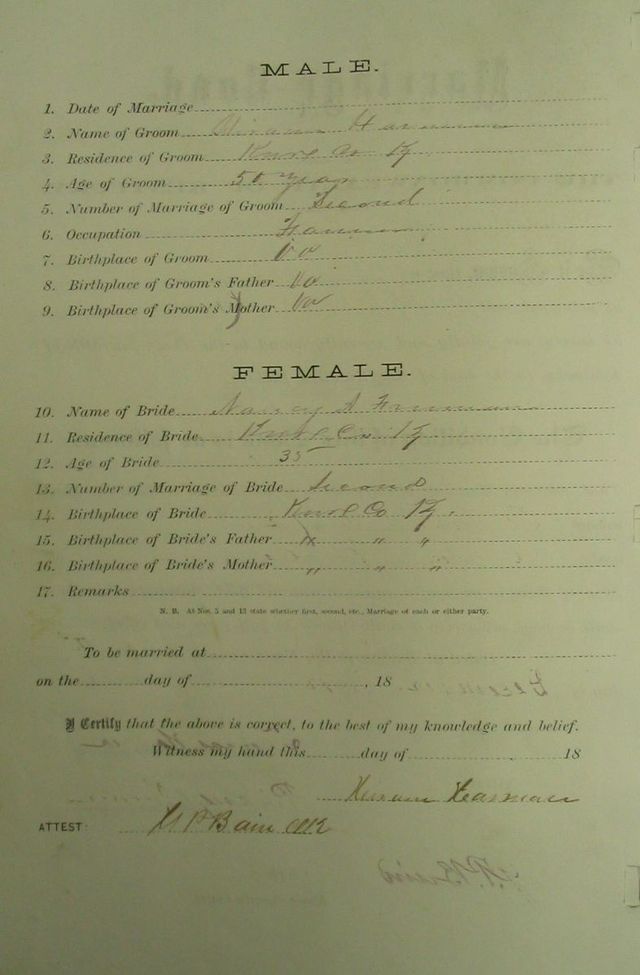 MALE.
1. Date of Marriage
2. Name of Groom Hiram Harman
3. Residence of Groom Knox Co Ky
4. Age of Groom 50 years
5. Number of Marriage of Groom Second
6. Occupation Farmer
7. Birthplace of Groom Va
8. Birthplace of Groom's Father Va
9. Birthplace of Groom's Mother Va
FEMALE.
10. Name of Bride Nancy A
11. Residence of Bride Knox Co Ky
12. Age of Bride 35
13. Number of Marriage of Bride Second
14. Birthplace of Bride Knox Co Ky.
15. Birthplace of Bride's Father " " "
16. Birthplace of Bride's Mother " " "
17. Remarks
N. B. At Nos. 5 and 13 state whether first, second, etc., Marriage of each or either party.
To be married at
on the day of , 18
I Certify that the above is correct, to the best of my knowledge and belief.
Witness my hand this day of 18
Harman
ATTEST: Bain